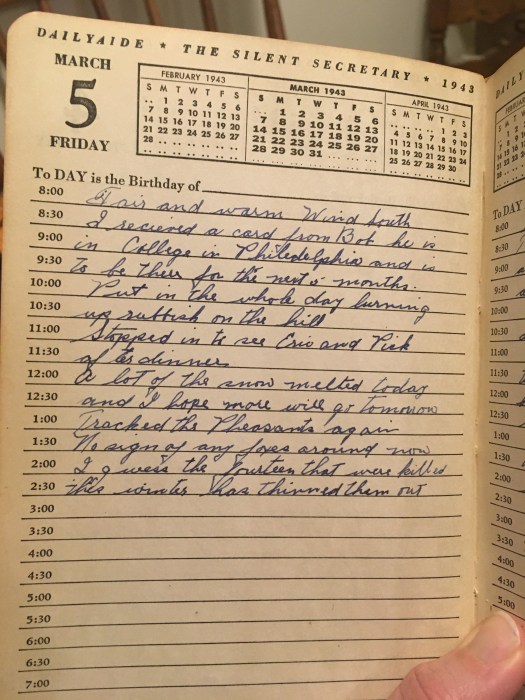 DAILYAIDE * THE SILENT SECRETARY * 1943
MARCH
5
FRIDAY
FEBRUARY 1943
S M T W T F S
.. 1 2 3 4 5 6
7 8 9 10 11 12 13
14 15 16 17 18 19 20
21 22 23 24 25 26 27
28 .. .. .. .. .. ..
MARCH 1943
S M T W T F S
.. 1 2 3 4 5 6
7 8 9 10 11 12 13
14 15 16 17 18 19 20
21 22 23 24 25 26 27
28 29 30 31 .. .. ..
APRIL 1943
S M T W T F S
.. .. .. .. 1 2 3
4 5 6 7 8 9 10
11 12 13 14 15 16 17
18 19 20 21 22 23 24
25 26 27 28 29 30 ..
To DAY is the Birthday of
8:00 Fair and warm Wind South
8:30 I recieved a card from Bob he is
9:00 in College in Philedelphia and is
9:30 to be there for the next 5 months.
10:00 Put in the whole day burning
10:30 up rubbish on the hill
11:00 Stopped in to see Eric and Dick
11:30 after dinner
12:00 A lot of the snow melted today
12:30 and I hope more will go tomorrow
1:00 Tracked the Pheasants again
1:30 No sign of any foxes around now
2:00 I guess the fourteen that were killed
2:30 this winter has thinned them out
3:00
3:30
4:00
4:30
5:00
5:30
6:00
6:30
7:00
DAILY
To DAY
8:00
8:30
9:00
9:30
10:00
10:30
11:00
11:30
12:00
12:30
1:00
1:30
2:00
2:30
3:00
3:30
4:00
4:30
5:00